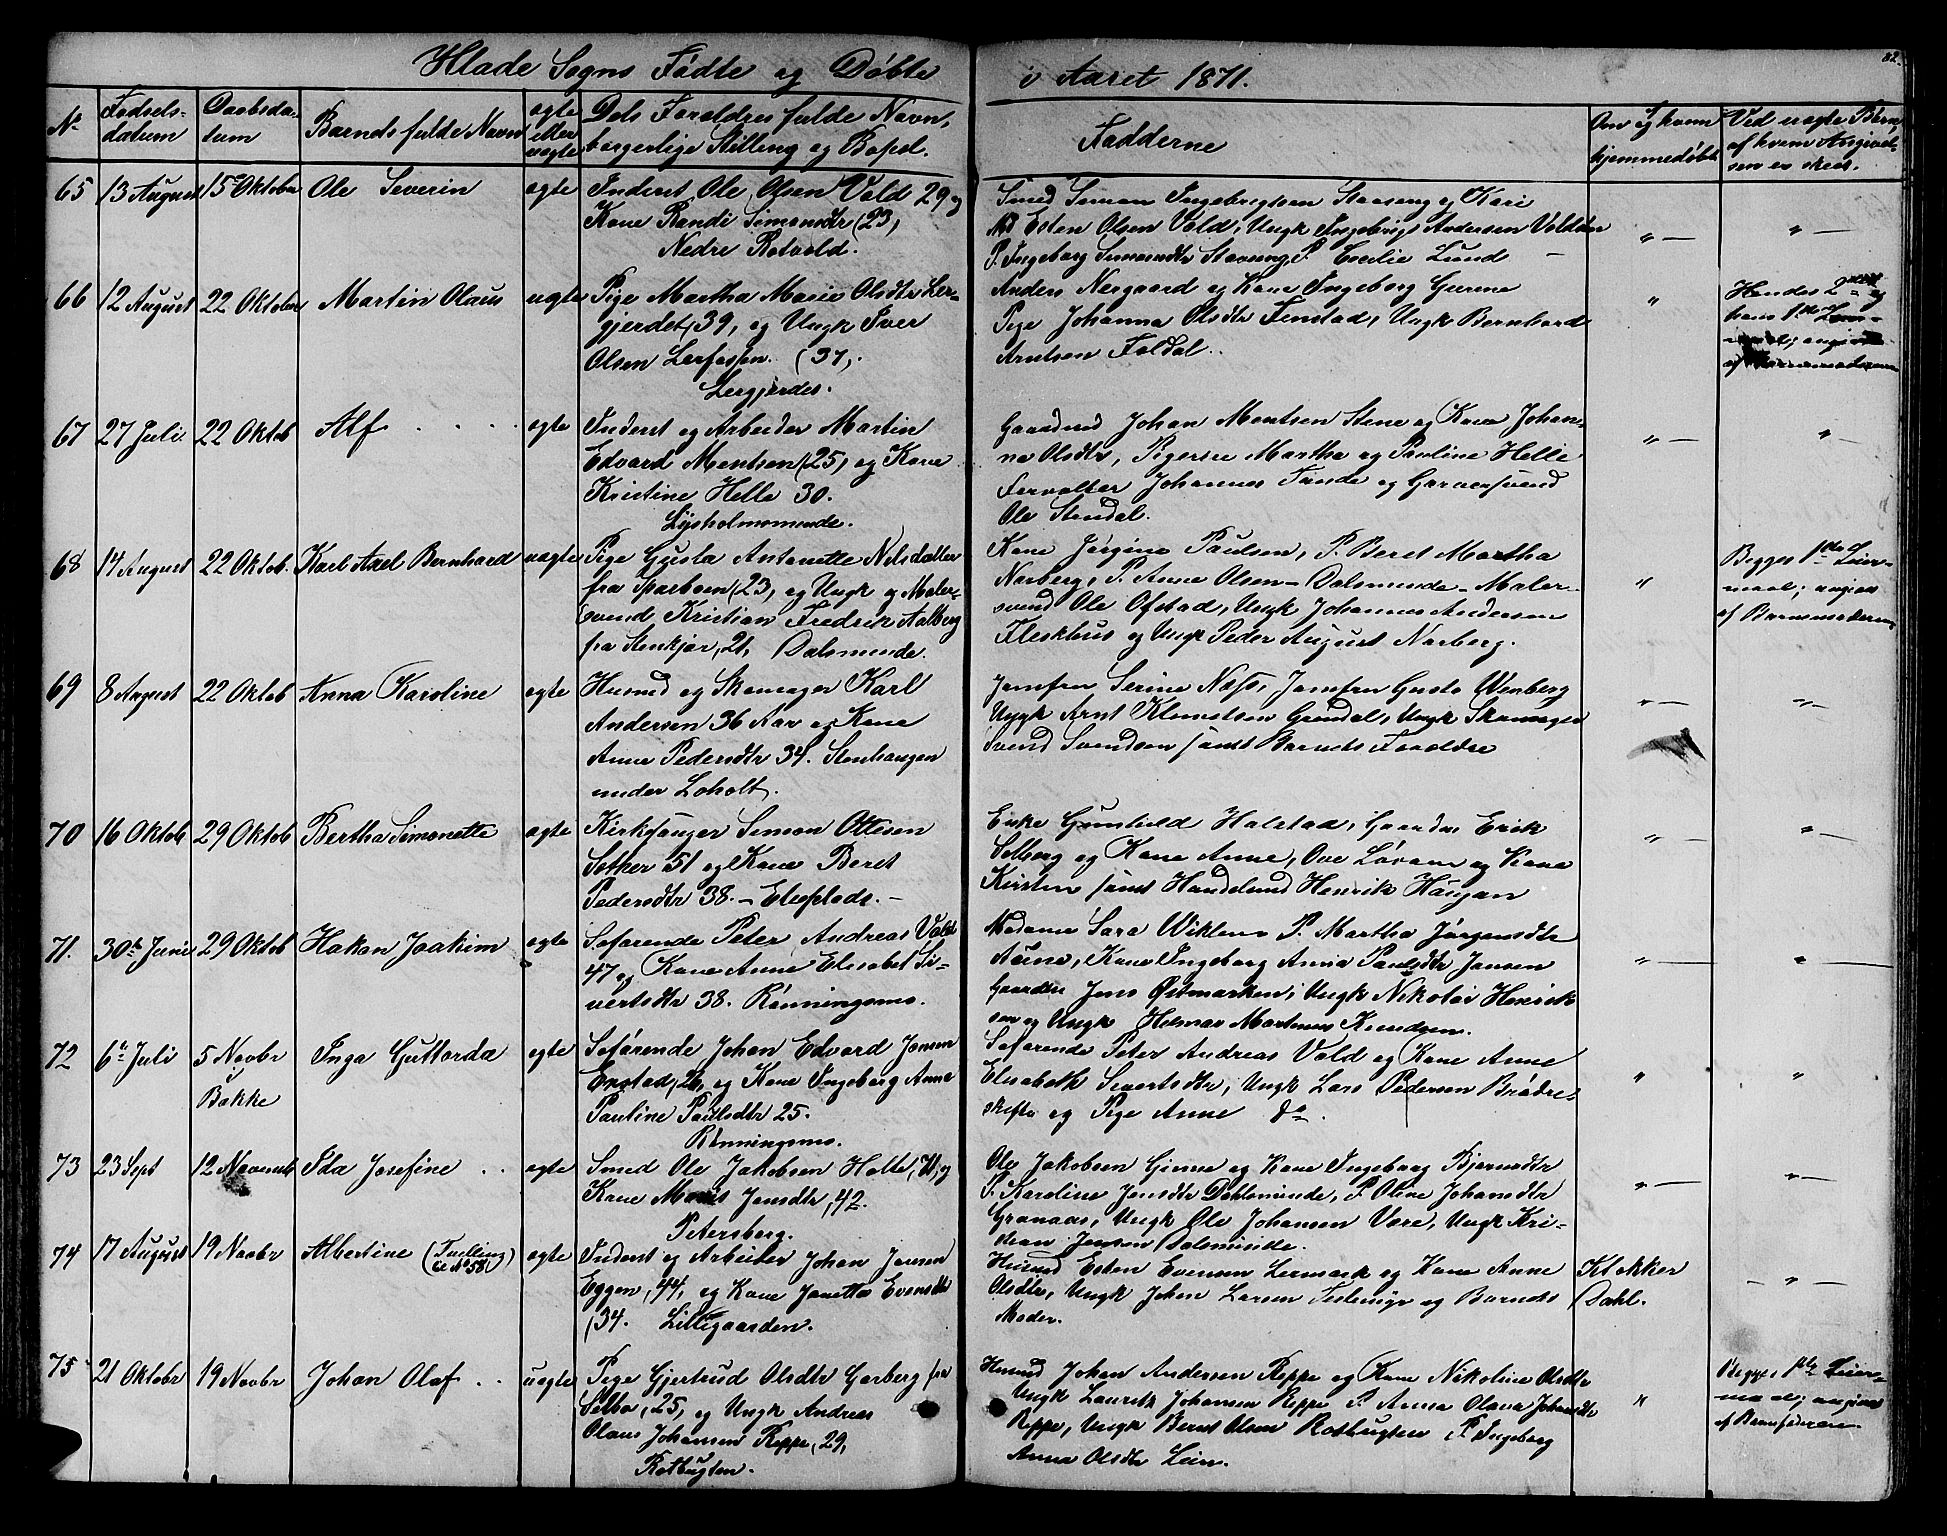 Hlade Sogns Fødte og Døbte i Aaret 1871.
82.
No Fødsels- datum Daabsda- tum Barnets fulde Navn ægte eller uægte Dets Forældres fulde Navn, borgerlige Stilling og Bopæl. Fadderne Om og hvem hjemmedøbt Ved uægte Børn, af hvem Angivel- sen er skeet.
65 13 August 15 Oktober Ole Severin ægte Inderst Ole Olsen Vold 29 og
Kone Randi Simonsdtr (23,
Nedre Rotvold.
Smed Simon Ingebrigtsen Stavseng og Kari
Esten Olsen Vold, Ungk Ingebrigt Andersen Volden
P. Ingeborg Simonsdtr Stavseng, P. Cecilie Lund
66 12 August 22 Oktober Martin Olaus uægte Pige Martha Marie Olsdtr Ler-
gjerdet, (39, og Ungk Iver
Olsen Lerfossen. (37,
Lergjerdet.
Anders Nergaard og Kone Ingeborg
Pige Johanna Olsdtr Finstad, Ungk Bernhard
Arntsen Foldal.
Hendes 2det og
hans 1ste
angivet
af Barnemoderen
67 27 Juli 22 Oktob Alf ægte Inderst og Arbeider Martin
Edvard Mentsen (25, og Kone
Kristine Helle 30.
Lysholmsminde.
Gaardmd Johan Mentsen Stene og Kone Johan-
na Olsdtr, Pigerne Martha og Pauline Helle
Forvalter Johannes Tande og Garversvend
Ole Stendal.
68 14 August 22 Oktob. Karl Axel Bernhard uægte Pige Gusta Antonette Nilsdatter
fra Sparboen (23, og Ungk og Maler-
svend Kristian Fredrik Aalberg
fra Stenkjær, 21, Dalsminde.
Kone Jørgine Paulsen, P. Beret Martha
Norberg, P. Anne Olsen – Dalsminde – Maler-
svend Ole Ofstad, Ungk Johannes Andersen
Fleskhus og Ungk Peder August Norberg.
Begges 1ste Leier-
maal; angivet
af Barnemoderen
69 8 August 22 Oktob Anna Karoline ægte Husmd og Skomager Karl
Andersen 36 Aar og Kone
Anne Pedersdtr 34. Stenhaugen
under Loholt.
Jomfru Serine Næss, Jomfru Gusta Wenberg
Ungk Arnt Klemetsen Grendal, Ungk Skomager
Svend Svendsen samt Barnets Forældre
70 16 Oktob 29 Oktob Bertha Simonette ægte Kirkesanger Simon Ottesen
Sæther 51 og Kone Beret
Pedersdtr 38. –
Enke Gunhild Halstad, Gaardm Erik
Solberg og Kone Anne, Ove Løvaas og Kone
Kirsten samt Handelsmd Henrik Haugan
71. 30te Juni 29 Oktob Hakon Joakim ægte Søfarende Peter Andreas Vold
47 og Kone Anne Elisabet Si-
vertsdtr 38. Rønningsmo.
Madame Sara Wiklem P. Martha Jørgensdtr
Aune, Kone Ingeborg Anna Paulsdtr Jansen
Gaardm Jens Østmarken, Ungk Nikolai Henrik-
sen og Ungk Helmar Martinus Knudsen.
72 6te Juli 5 Novbr
i
Bakke Inga Guttorda ægte Søfarende Johan Edvard Jensen
Enstad, 26, og Kone Ingeborg Anna
Pauline Paulsdtr 25.
Rønningsmo.
Søfarende Peter Andreas Vold og Kone Anne
Elisabeth Sivertsdtr, Ungk Lars Pedersen Brødre-
skift og Pige Anne do.
73 23 Sept 12 Novemb Ida Josefine ægte Smed Ole Jakobsen Holte, og
Kone Jensdtr, 42.
Petersberg.
Ole Jakobsen Ginne og Kone Ingeborg Bjernsdtr
P. Karoline Jensdtr Dahlsminde, P. Oline Johansdtr
Granaas, Ungk Ole Johansen Være, Ungk Kri-
stian Jensen Dalsminde.
74 17 August 19 Novbr Albertine (Tvilling til No 58) ægte Inderst og Arbeider Johan Jensen
Eggen, 44, og Kone Janetta Evensdtr
(34. Lillegaarden.
Husmd Esten Evensen Lermark og Kone Anne
Olsdtr, Ungk Johan Larsen Testemyr og Barnets
Moder.
Klokker
Dahl.
75 21 Oktobr 19 Novbr Johan Olaf uægte Pige Gjertrud Olsdtr Garberg fra
Selbo, 25, og Ungk Andreas
Olaus Johansen Reppe, 29,
Rotbugten.
Husmd Johan Andersen Reppe og Kone Nikoline Olsdtr
Ungk Lauritz Johansen Reppe P. Anna Olava Johansdtr
Reppe, Ungk Bernt Olsen Rotbugten P. Ingeborg
Anna Olsdtr Leien.
Begges 1ste Leier-
maal; angivet
af Barnefaderen